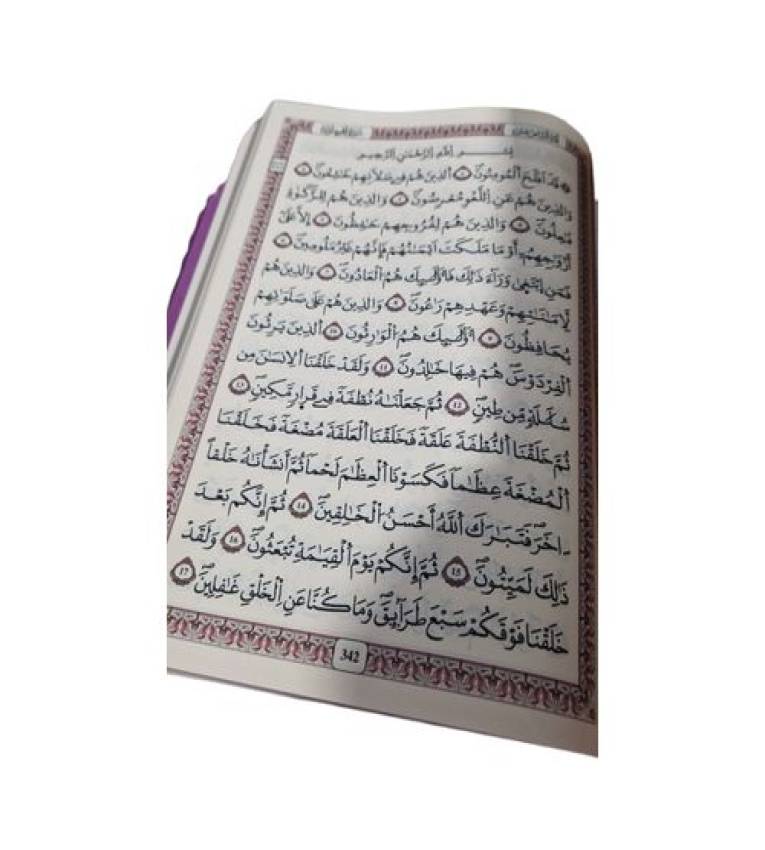 بِسْمِ اِللَّهِ اِلرَّحْمَٰنِ اِلرَّحِيمِ
قَدَ اَفْلَحَ اَلْمُومِنُونَ 1 اَلذِينَ هُمْ فِے صَلَاتِهِمْ خَٰشِعُونَ 2
وَالذِينَ هُمْ عَنِ اِللَّغْوِ مُعْرِضُونَ 3 وَالذِينَ هُمْ لِلزَّكَوٰةِ
فَٰعِلُونَ 4 وَالذِينَ هُمْ لِفُرُوجِهِمْ حَٰفِظُونَ 5 إِلَّا عَلَىٰ
أَزْوَٰجِهِمُۥٓ أَوْ مَا مَلَكَتَ اَيْمَٰنُهُمْ فَإِنَّهُمْ غَيْرُ مَلُومِينَ 6
فَمَنِ اِبْتَغَىٰ وَرَآءَ ذَٰلِكَ فَأُوْلَٰٓئِكَ هُمُ اُلْعَادُونَ 7 وَالذِينَ هُمْ
لِأَمَٰنَٰتِهِمْ وَعَهْدِهِمْ رَٰعُونَ 8 وَالذِينَ هُمْ عَلَىٰ صَلَوَٰتِهِمْ
يُحَافِظُونَ 9 أُوْلَٰٓئِكَ هُمُ اُلْوَٰرِثُونَ 10 اَلذِينَ يَرِثُونَ
اَلْفِرْدَوْسَ هُمْ فِيهَا خَٰلِدُونَ 11 وَلَقَدْ خَلَقْنَا اَلْإِنسَٰنَ مِن
سُلَٰلَةٍ مِّن طِينٍ 12 ثُمَّ جَعَلْنَٰهُ نُطْفَةً فِے قَرَارٍ مَّكِينٍ 13
ثُمَّ خَلَقْنَا اَلنُّطْفَةَ عَلَقَةً فَخَلَقْنَا اَلْعَلَقَةَ مُضْغَةً فَخَلَقْنَا
اَلْمُضْغَةَ عِظَٰماً فَكَسَوْنَا اَلْعِظَٰمَ لَحْماً ثُمَّ أَنشَأْنَٰهُ خَلْقاً
اٰخَرَ فَتَبَٰرَكَ اَللَّهُ أَحْسَنُ اُلْخَٰلِقِينَ 14 ثُمَّ إِنَّكُم بَعْدَ
ذَٰلِكَ لَمَيِّتُونَ 15 ثُمَّ إِنَّكُمْ يَوْمَ اَلْقِيَٰمَةِ تُبْعَثُونَ 16 وَلَقَدْ
خَلَقْنَا فَوْقَكُمْ سَبْعَ طَرَآئِقَ وَمَا كُنَّا عَنِ اِلْخَلْقِ غَٰفِلِينَ 17
342